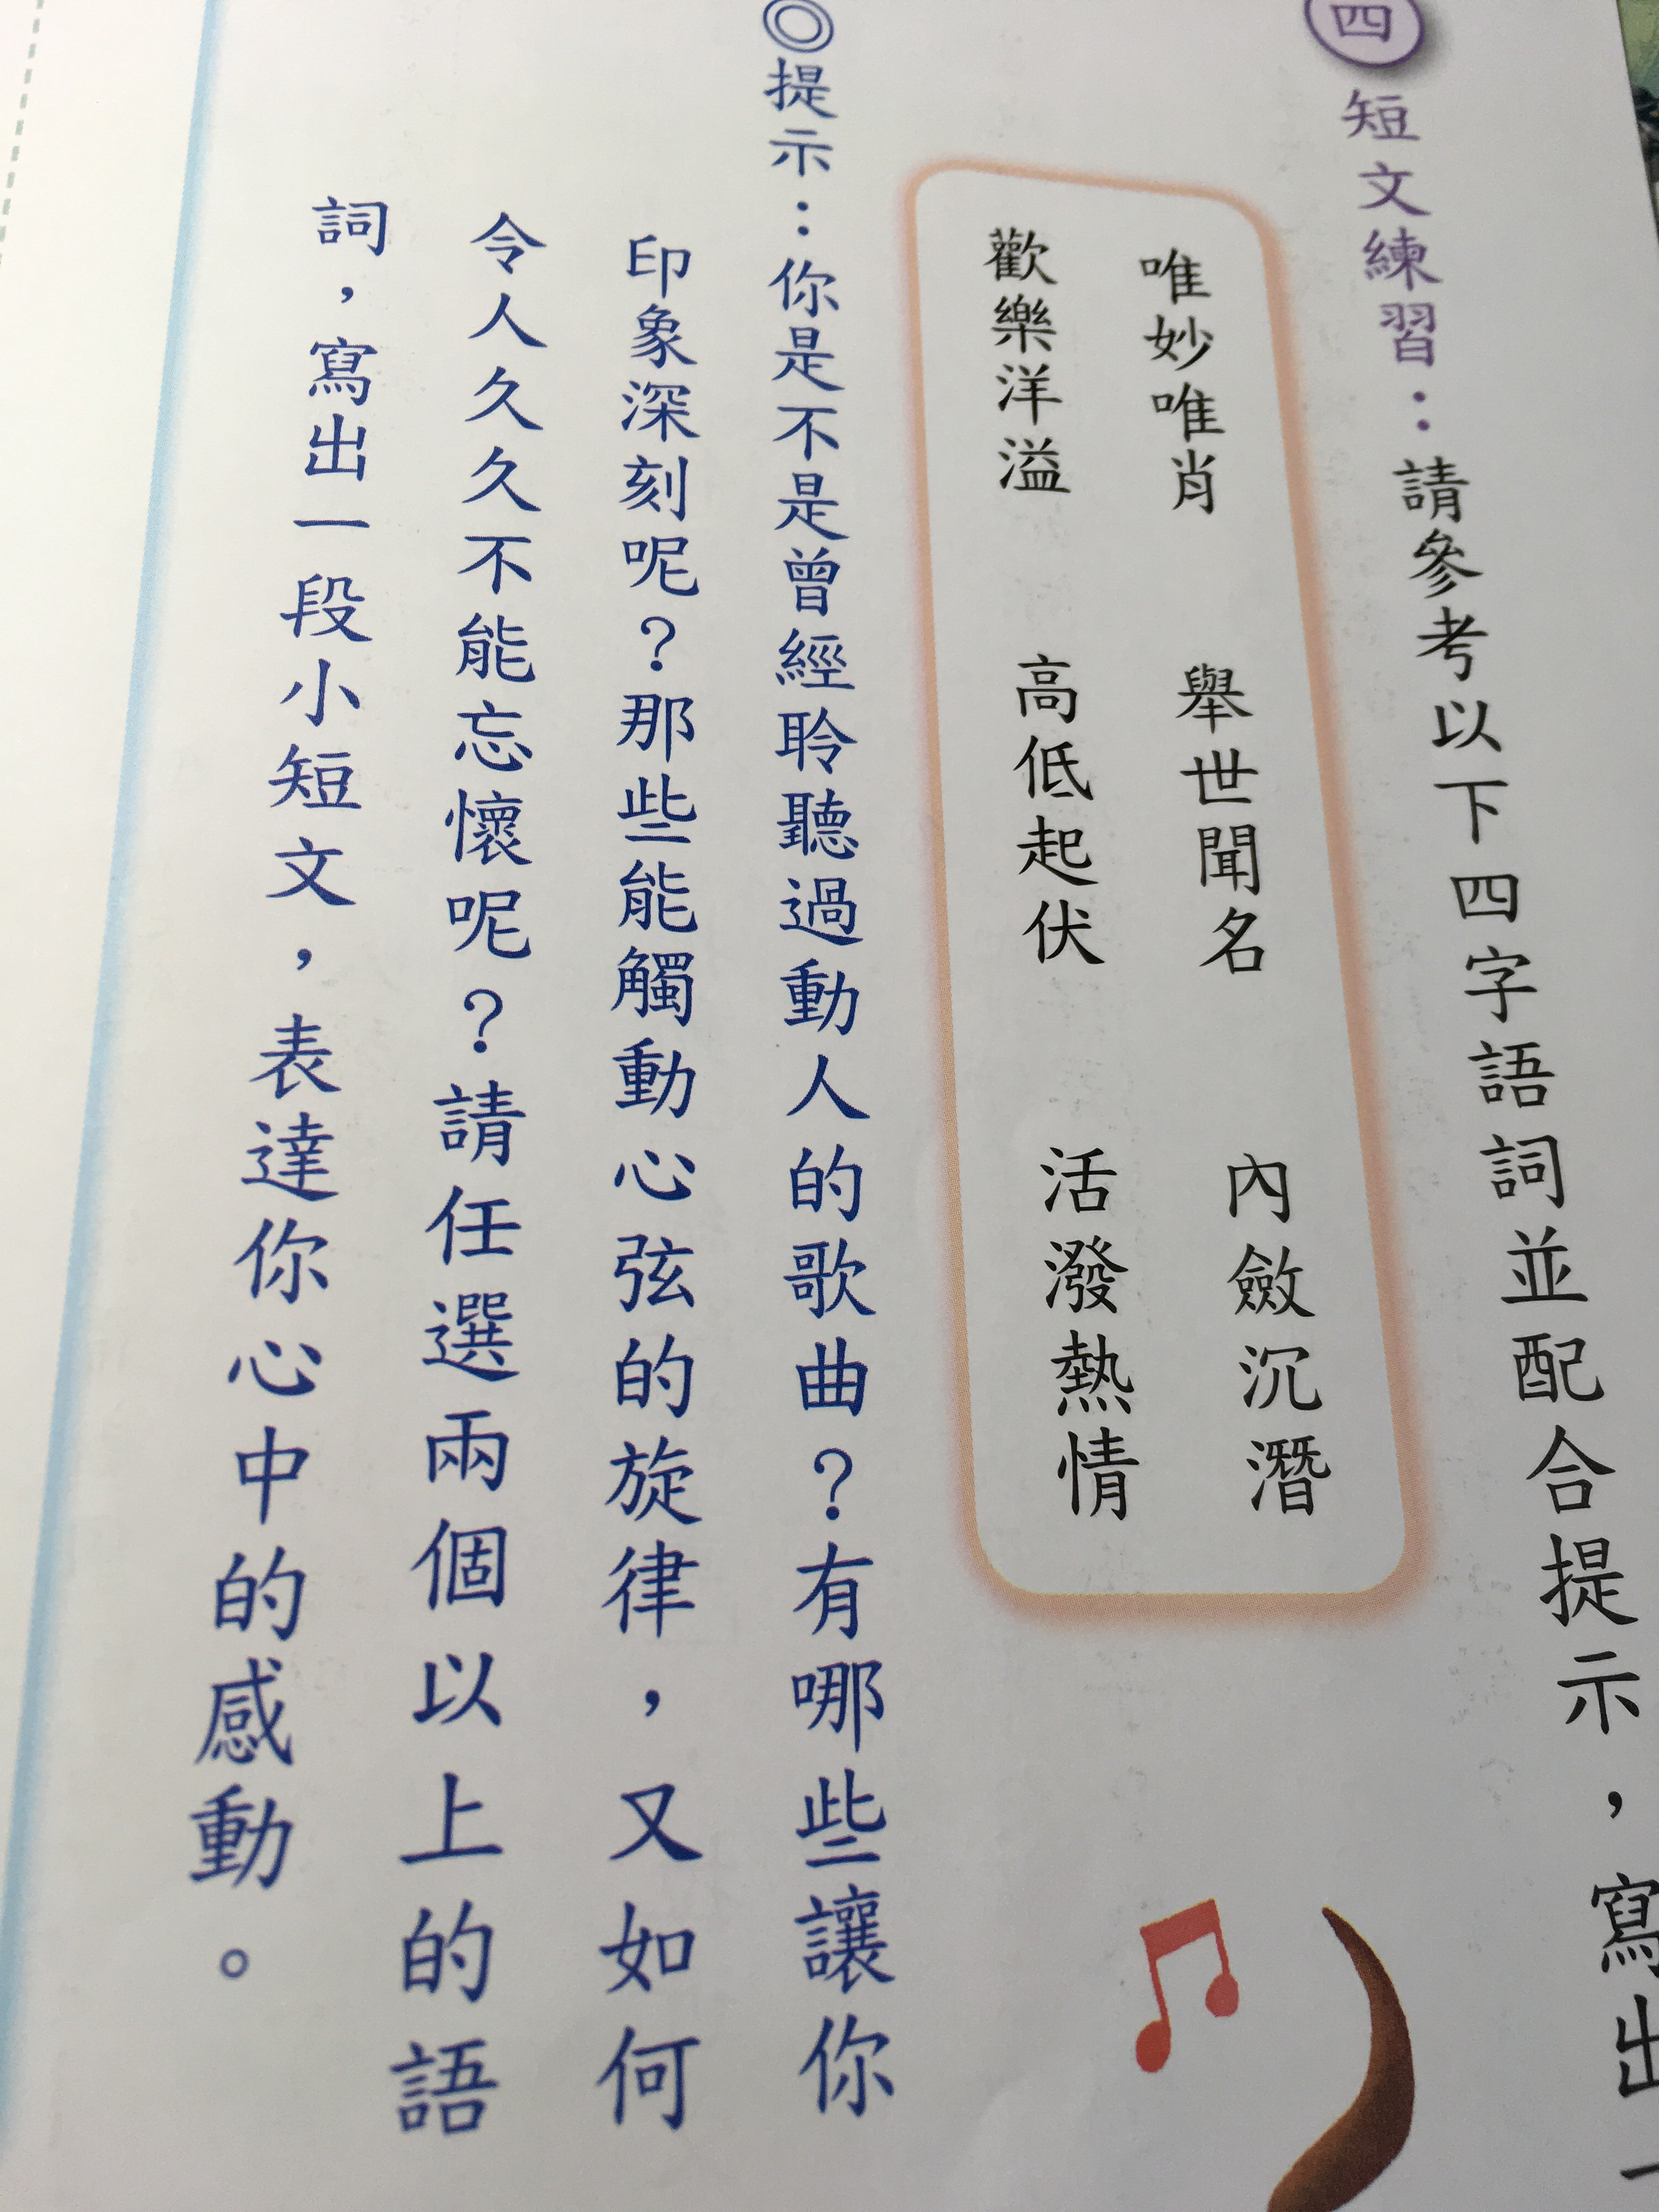 四 短文練習：請參考以下四字語詞並配合提示，寫出一
唯妙唯肖 舉世聞名 內斂沉潛
歡樂洋溢 高低起伏 活潑熱情
◎提示：你是不是曾經聆聽過動人的歌曲？有哪些讓你
印象深刻呢？那些能觸動心弦的旋律，又如何
令人久久不能忘懷呢？請任選兩個以上的語
詞，寫出一段小短文，表達你心中的感動。